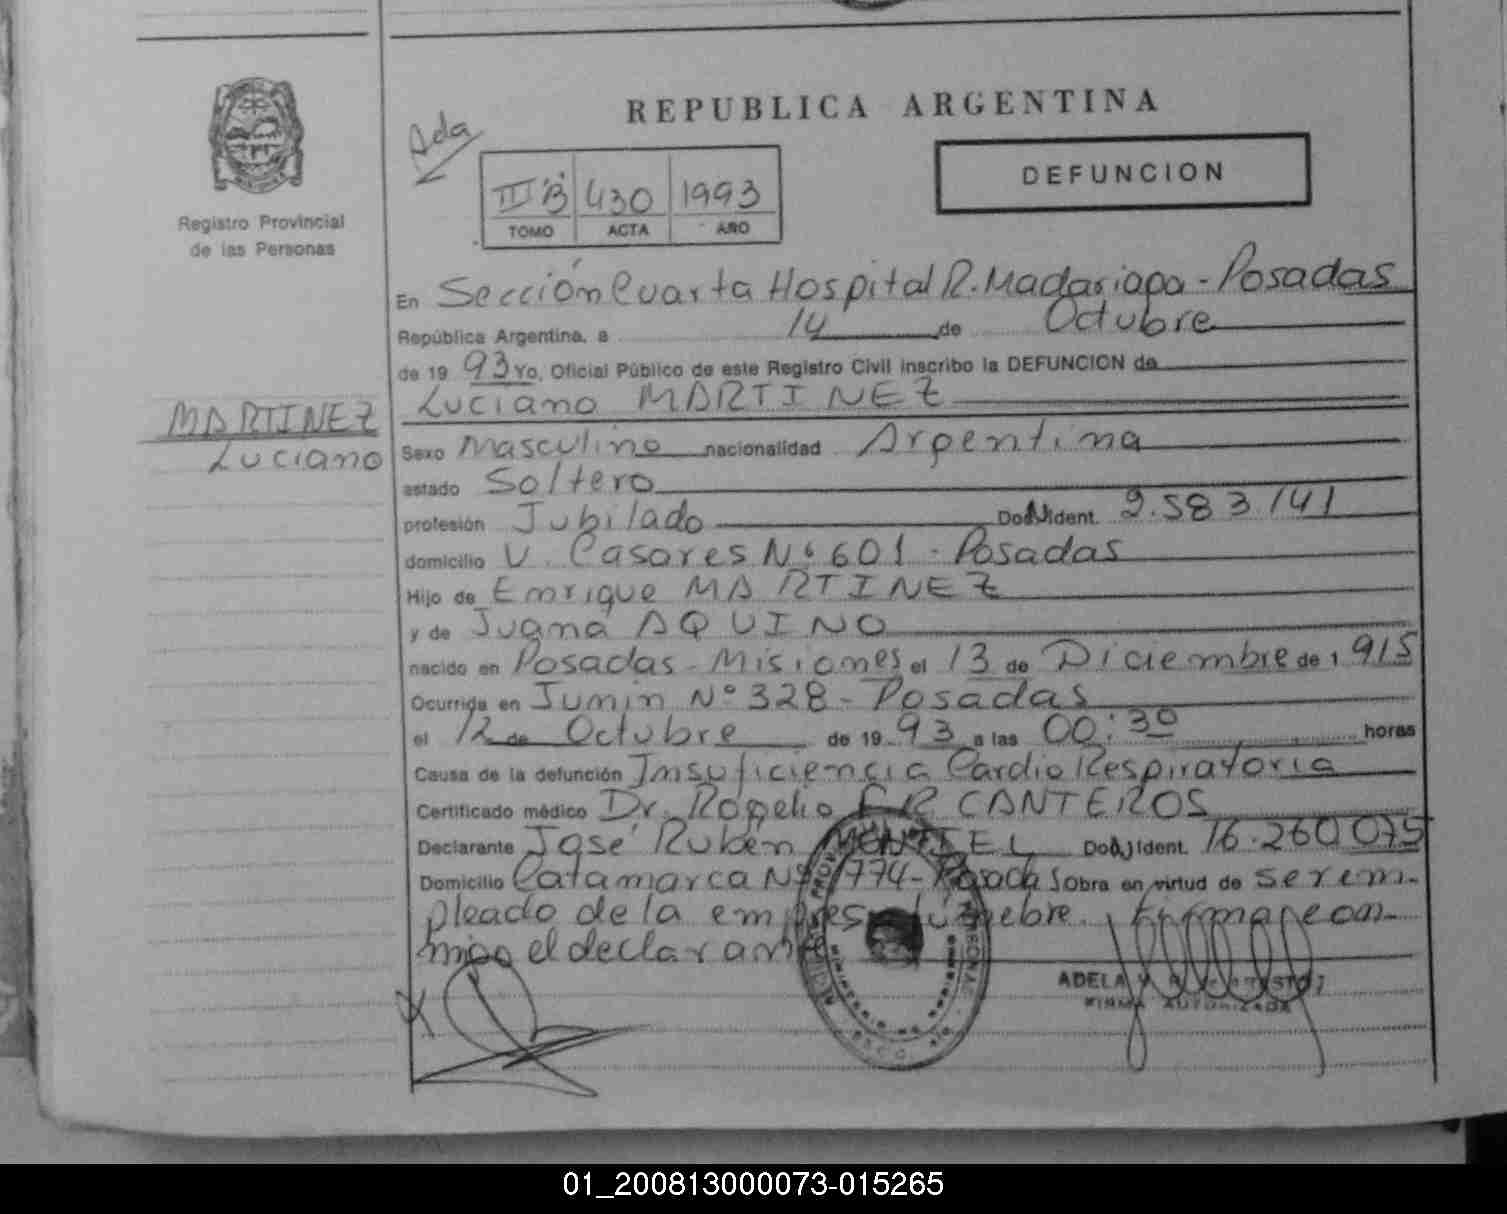 REPUBLICA ARGENTINA
Ada
DEFUNCION
III "B" 430 1993
TOMO ACTA AÑO
Registro Provincial
de las Personas
En Sección Cuarta Hospital R. Madariaga - Posadas
República Argentina, a 14 de Octubre
de 19 93 Yo, Oficial Público de este Registro Civil inscribo la DEFUNCION de
Luciano MARTINEZ
MARTINEZ
Luciano
Sexo Masculino nacionalidad Argentina
estado Soltero
profesión Jubilado Doc. Ident. 2.583.141
domicilio V. Casares Nº 601 - Posadas
Hijo de Enrique MARTINEZ
y de Juana AQUINO
nacido en Posadas - Misiones el 13 de Diciembre de 1 915
Ocurrida en Junin Nº 328 - Posadas
el 12 de Octubre de 19 93 a las 00:30 horas
Causa de la defunción Insuficiencia Cardio Respiratoria
Certificado médico Dr. Rogelio CANTEROS
Declarante José Rubén MONTIEL Doc. Ident. 16.260.075
Domicilio Catamarca Nº 1774 - Posadas Obra en virtud de ser em-
pleado de la empresa fúnebre. Firma con-
migo el declarante
ADELA
FIRMA AUTORIZADA
01_200813000073-015265